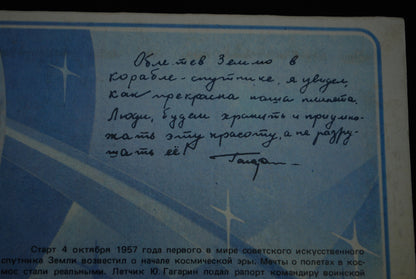 Облетев Землю в
корабле-спутнике, я увидел,
как прекрасна наша планета.
Люди, будем хранить и приумно-
жать эту красоту, а не разру-
шать её!
Гагарин
Старт 4 октября 1957 года первого в мире советского искусственного
спутника Земли возвестил о начале космической эры. Мечты о полетах в кос-
мос стали реальными. Летчик Ю. Гагарин подал рапорт командиру воинской